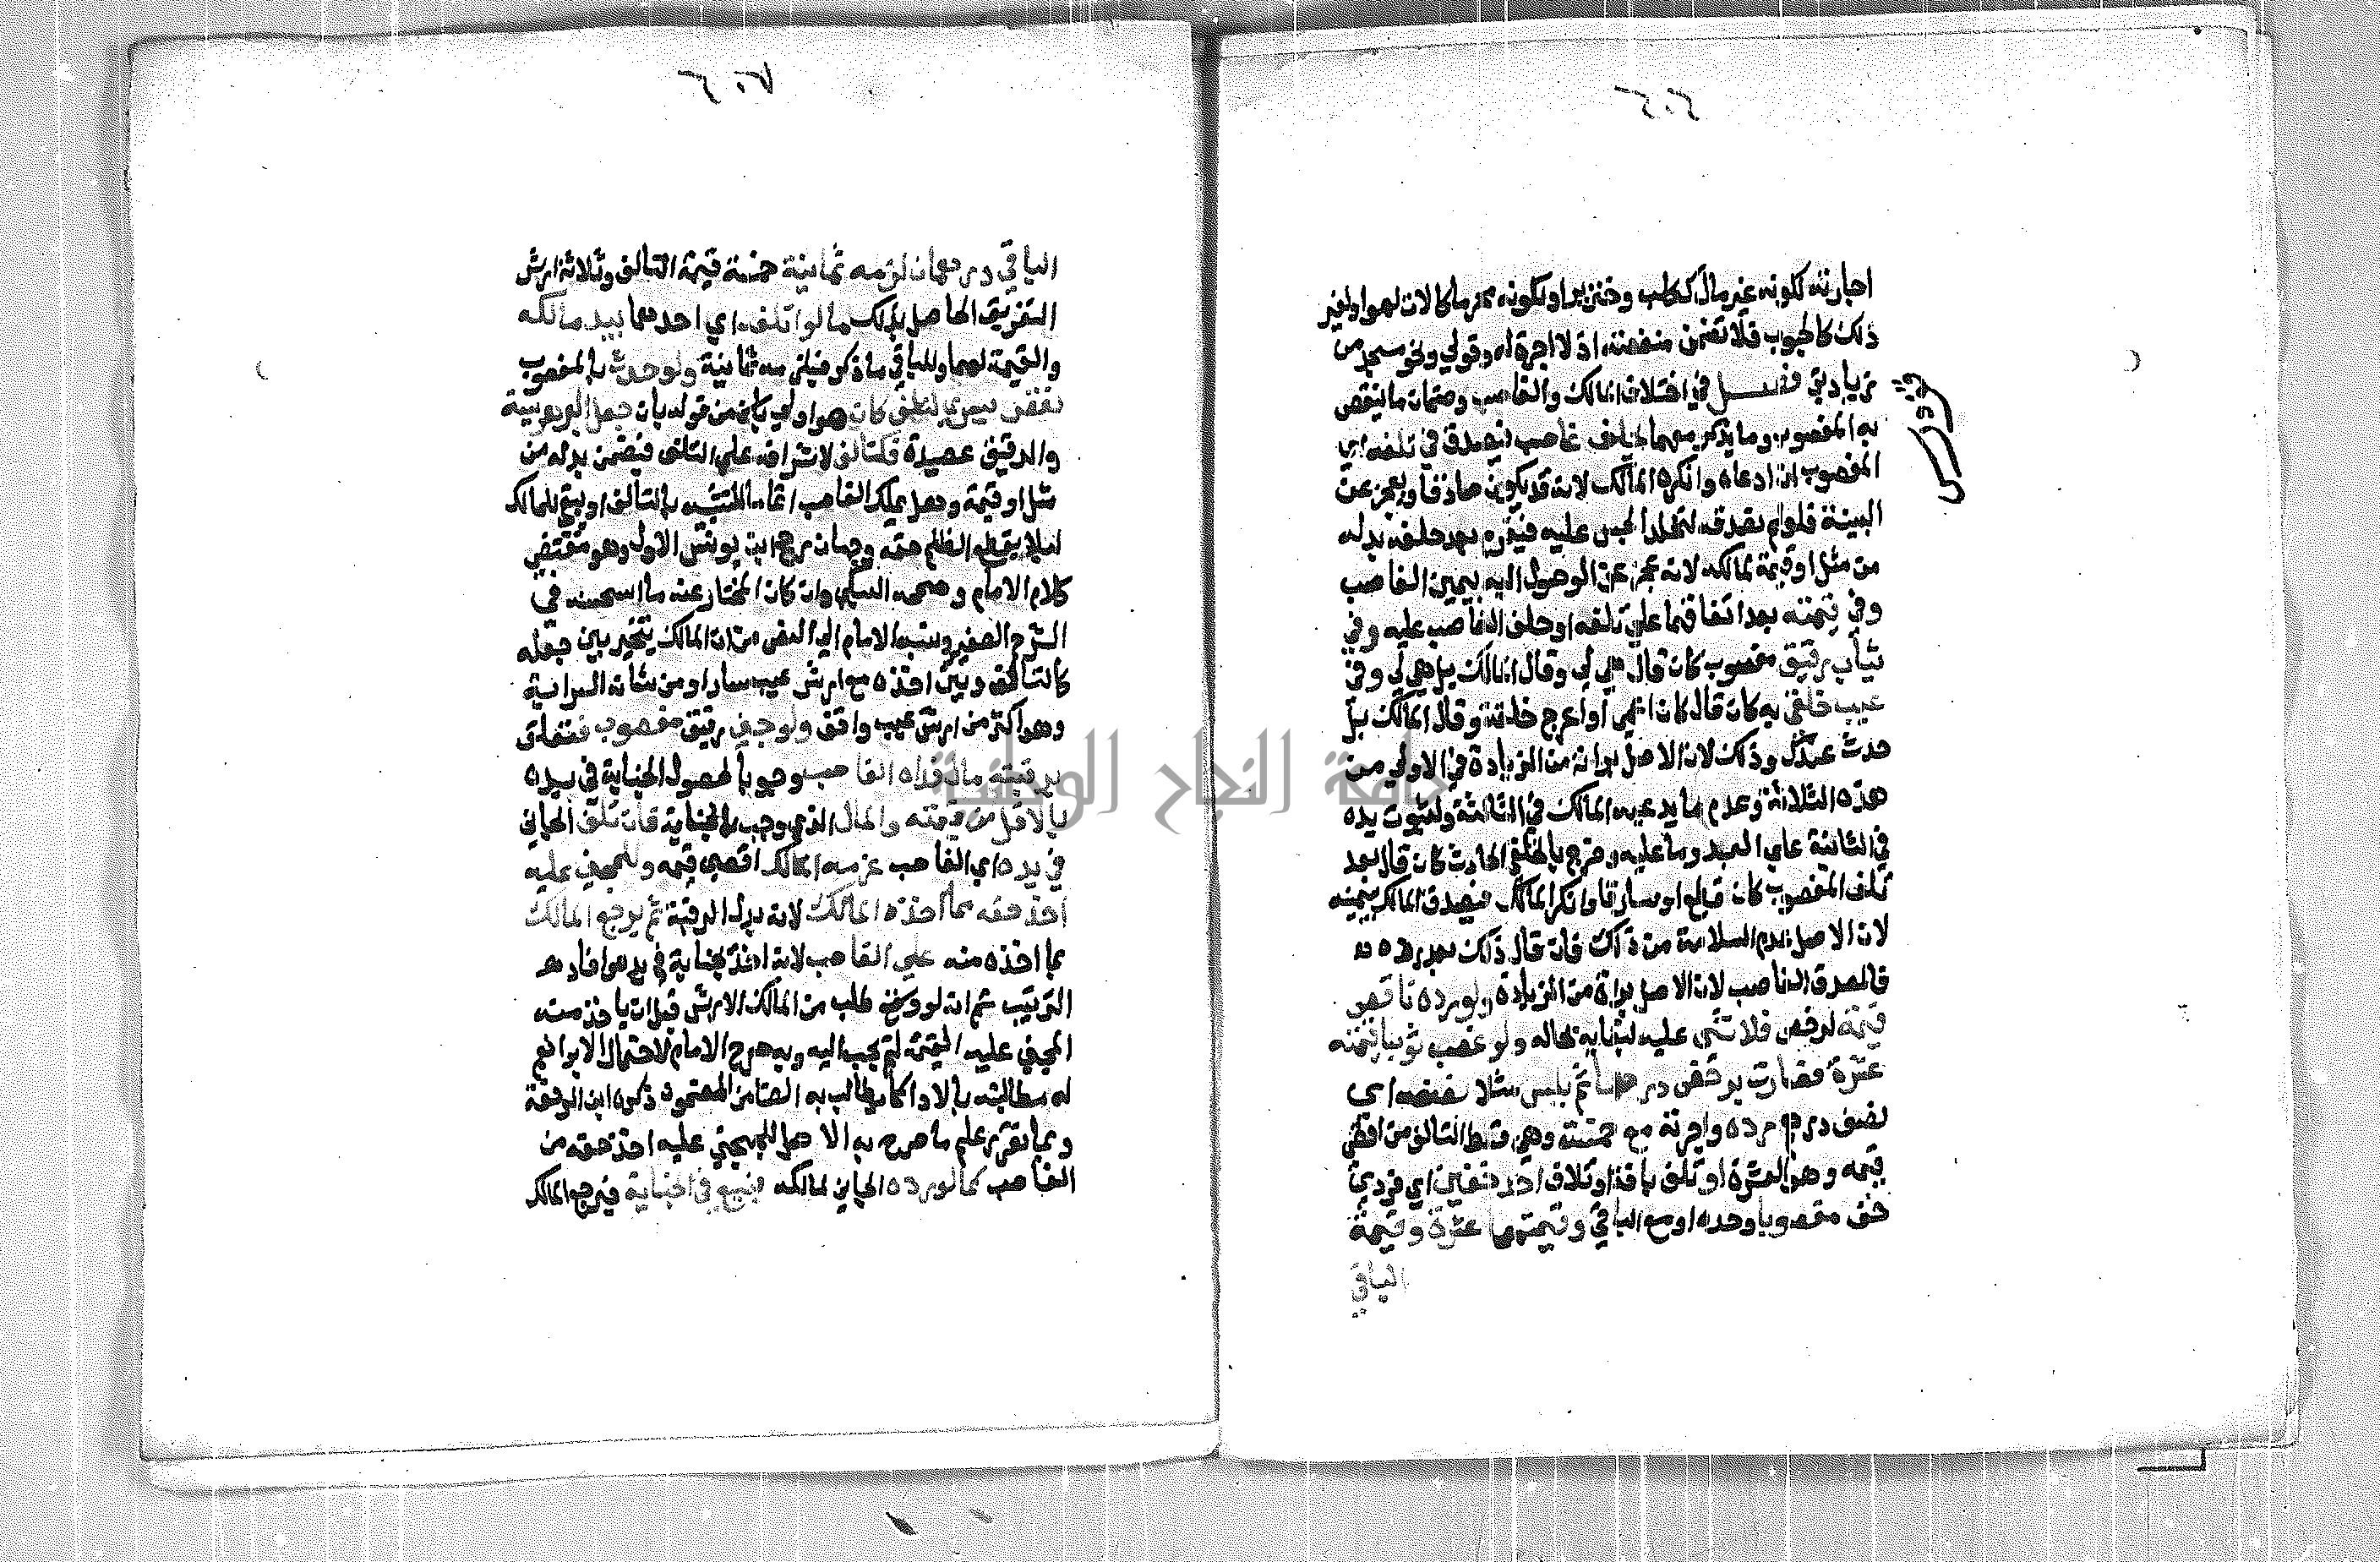 ٢٠٦
اجارته لكونه غير مال ككلب وخنزير او لكونه محرما كالات لهو او لغير
ذلك كالحبوب فلا تضمن منفعته اذ لا اجرة له وقولي ونحو مسجد من
زيادتي فصل في اختلاف المالك والغاصب وضمان ما ينقص
به المغصوب وما يذكر معهما يحلف غاصب فيصدق في تلفه اي
المغصوب ان ادعاه وانكره المالك لانه قد يكون صادقا ويعجز عن
البينة فلو لم نصدقه لتخلد الحبس عليه فيغرم بعد حلفه بدله
من مثل او قيمة لمالكه لانه عجز عن الوصول اليه بيمين الغاصب
وفي قيمته بعد اتفاقهما على تلفه او حلف الغاصب عليه وفي
ثياب رقيق مغصوب كان قال هي لي وقال المالك بل هي لي وفي
عيب خلقي به كان قال كان اعمى او اعرج خلقة وقال المالك بل
حدث عندك وذلك لان الاصل براته من الزيادة في الاولى من
هذه الثلاثة وعدم ما يدعيه المالك في الثالثة ولثبوت يده
في الثانية على العبد وما عليه وخرج بالخلقي الحادث كان قال بعد
تلف المغصوب كان قاطعا او سارقا وانكر المالك فيصدق المالك بيمينه
لان الاصل عدم السلامة من ذلك فان قال ذلك بعد رده
فالمصدق الغاصب لان الاصل براته من الزيادة ولو رده ناقص
قيمة لرخص فلا شي عليه لبقايه بحاله ولو غصب ثوبا قيمته
عشرة فصارت برخص درهما ثم بلبس مثلا نصفه اي
نصف درهم رده واجرته مع خمسة وهي قسط التالف من اقصى
قيمه وهو العشرة او تلف باقة او تلاف احد خفين اي فردي
خف مغصوبا وحده او مع الباقي وقيمتهما عشرة وقيمة
الباقي
٢٠٧
الباقي درهمان لزمه ثمانية خمسة قيمة التالف وثلاثة ارش
التفريق الحاصل بذلك كما لو اتلفه اي احدهما بيد مالكه
والقيمة لهما وللباقي ما ذكر فيلزمه ثمانية ولو حدث بالمغصوب
نقص يسري لتلف كان هو اولى من قوله بان جعل البر هريسة
والدقيق عصيدة فكتالف لاشرافه على التلف فيضمن بدله من
مثل او قيمة وهل يملك الغاصب اتماما للتشبيه بالتالف او يبقى للمالك
ليلا يقطع الظلم حقه وجهان رجح ابن يونس الاول وهو مقتضى
كلام الامام وصححه السبكي وان كان المختار عنه ما استحسنه في
الشرح الصغير ونسبه الامام الى النص من ان المالك يتخير بين جعله
كالتالف وبين اخذه مع ارش عيب سار او من شانه السراية
وهو اكثر من ارش عيب واقف ولو جنى رقيق مغصوب فتعلق
برقبته مال فداه الغاصب وجوبا لحصول الجناية في يده
بالاقل من قيمته والمال الذي وجب بالجناية فان تلف الجاني
في يده اي الغاصب غرمه المالك اقصى قيمه وللمجني عليه
اخذ حقه مما اخذه المالك لانه بدل الرقبة ثم يرجع المالك
بما اخذه منه على الغاصب لانه اخذ بجناية في يده وافاد
الترتيب ثم انه لو طلب من المالك الارش قبل ان ياخذ منه
المجني عليه القيمة لم يجب اليه وبه صرح الامام لاحتمال الابرا نعم
له مطالبته بالاداء كما يطالب به الضامن المضمون ذكره ابن الرفعة
وبما تقرر علم ما صرح به الاصل للمجني عليه اخذ حقه من
الغاصب كما لو رده الجاني لمالكه فبيع في الجناية فيرجع المالك
جامعة النجاح الوطنية